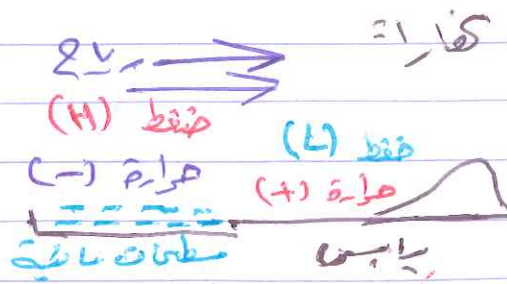 نهاراً:
رياح
ضغط (H)
ضغط (L)
حرارة (-)
حرارة (+)
مسطحات مائية
يابس